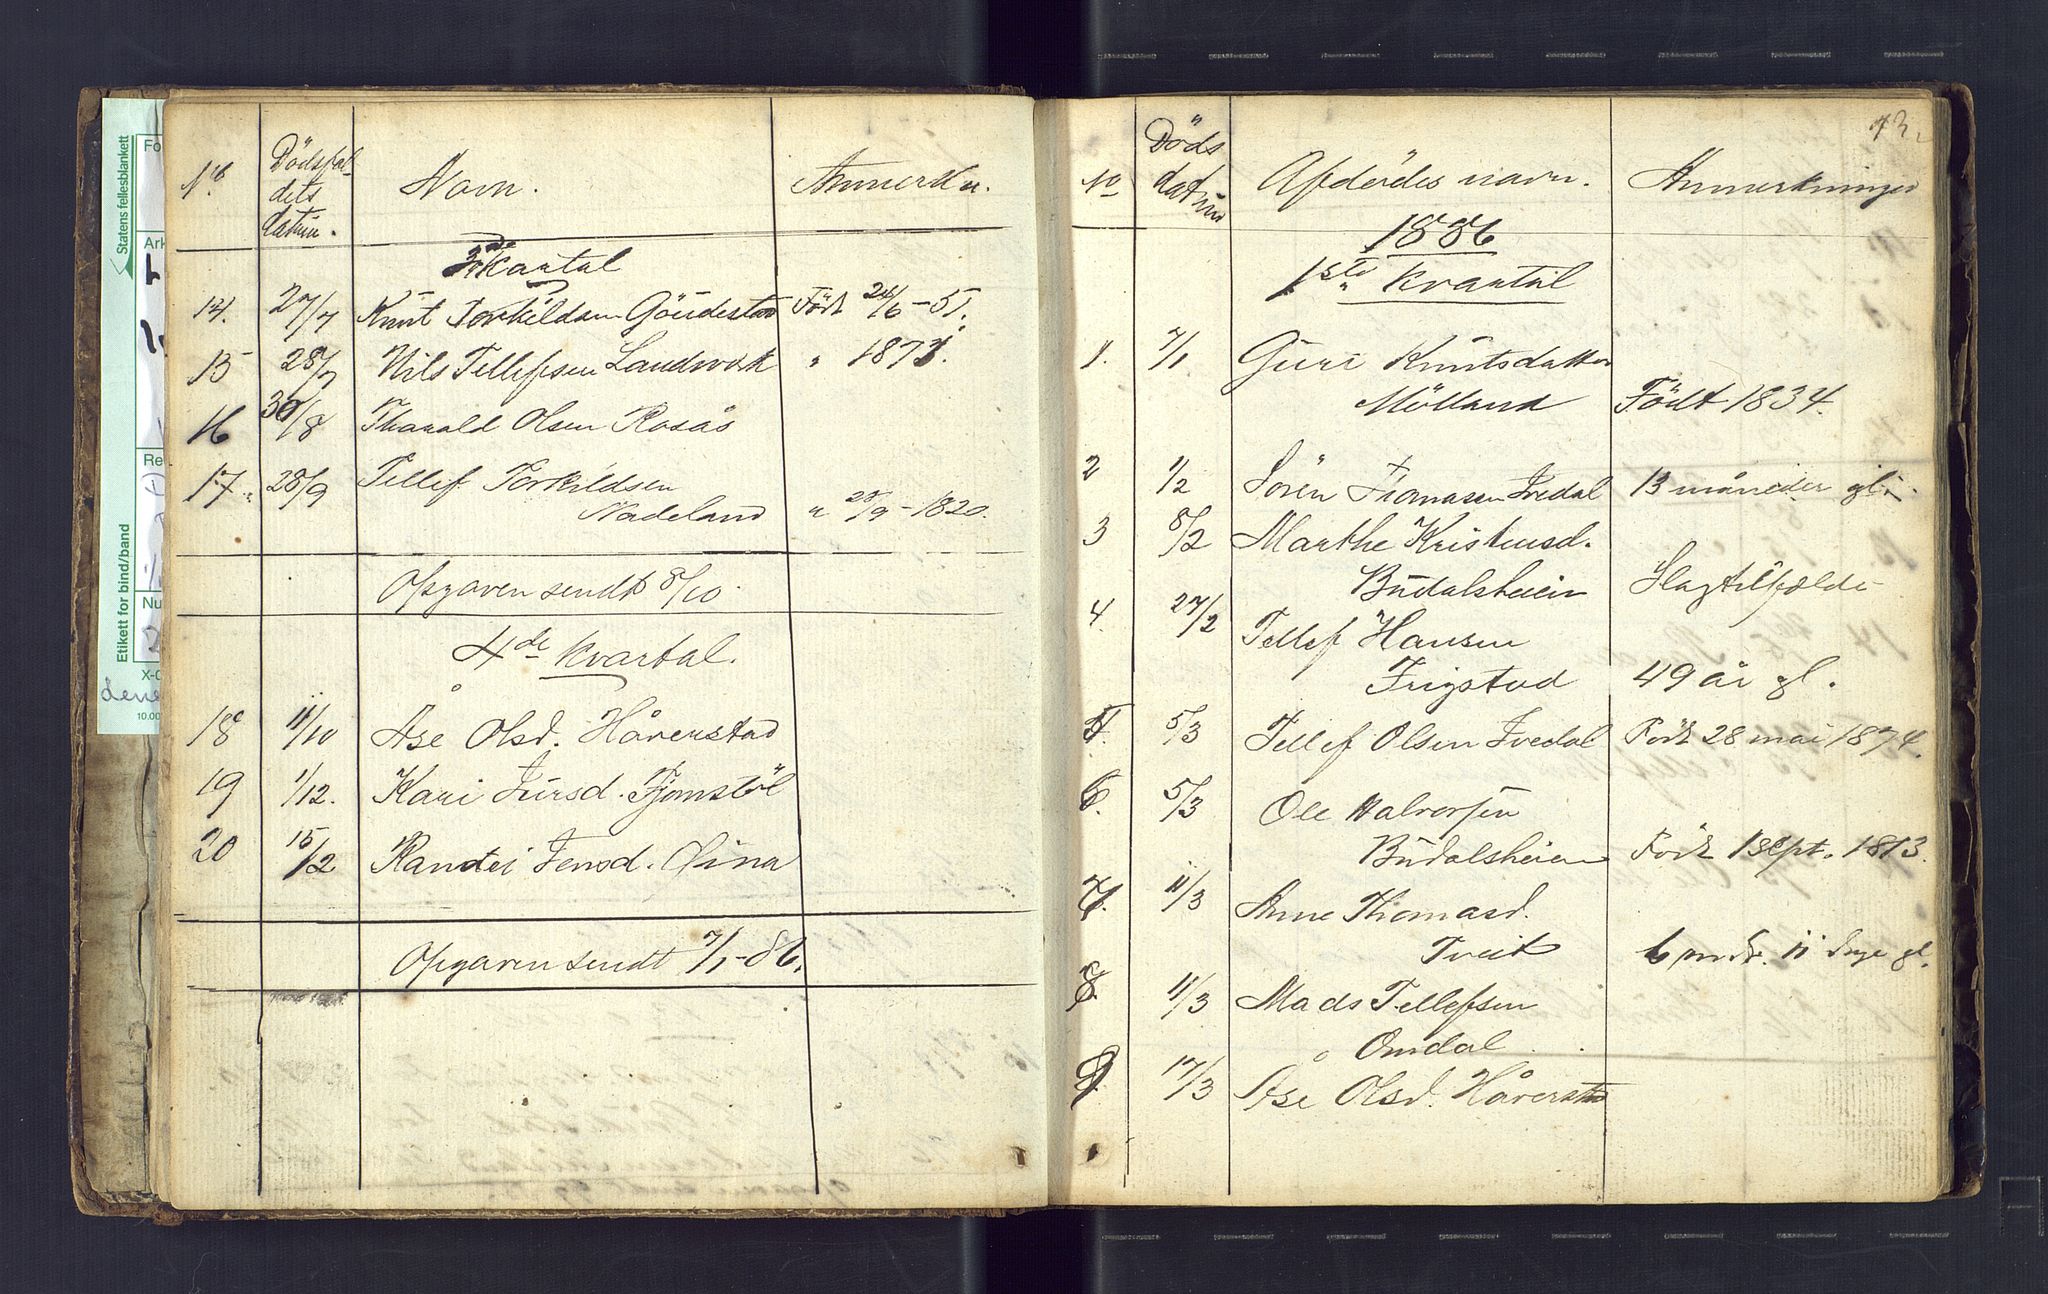 Statens fellesblankett
Etikett for bind/band
Fo
Ark
Re
Nu
X-
10.00
No Dödsfal-
dets
datum. Navn. Anmerkn.
3die Kvartal
14. 27/7 Knut Torkildsen Göudestad Födt 24/6-51.
15 28/7 Nils Tellefsen Landvork " 1871.
16 30/8 Tharald Olsen Rosås
17. 28/9 Tellef Torkildsen
Nadeland " 28/9-1820.
Opgaven sendt 8/10.
4de Kvartal.
18 11/10 Åse Olsd. Håverstad
19 1/12. Kari Jursd. Fjomstöl
20 15/12 Randei Jensd.
Opgaven sendt 7/1-86.
73.
No Döds
datum Afdödes navn. Anmerkninger
1886
1ste Kvartal
1. 7/1 Guri Knutsdatter
Mölland Födt 1834.
2 1/2 Sören Tomassen Ivedal 13 måneder gl.
3 8/2 Marthe Kristensd.
Budalsheien Slagtilfælde
4. 27/2 Tellef Hansen
Frigstad 49 år gl.
5. 5/3 Tellef Olsen Ivedal Födt 28 mai 1874.
6. 5/3 Ole Halvorsen
Budalsheien Födt 1 sept. 1813.
7. 11/3 Anne Thomasd.
Tveit 6 mdr. 11 dage gl.
8. 11/3 Mads Tellefsen
Omdal
9. 17/3 Åse Olsd. Håverstad